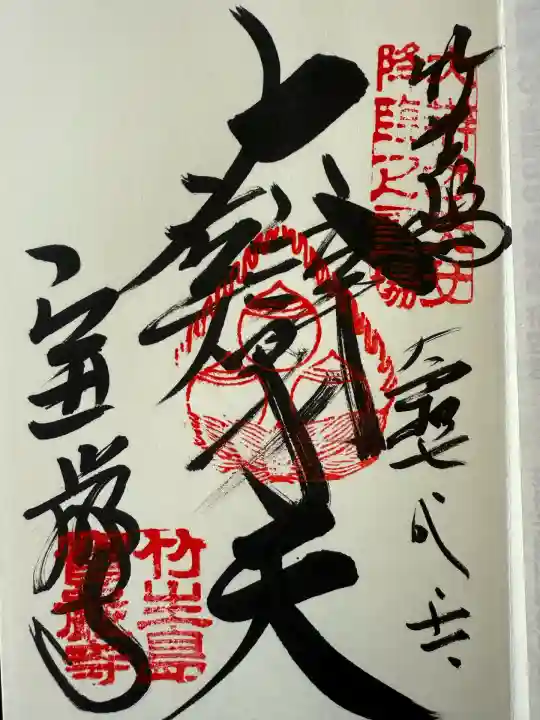 竹生島
降臨之霊場
令和七 八
大辯才天
宝厳寺
竹生島
寳嚴寺